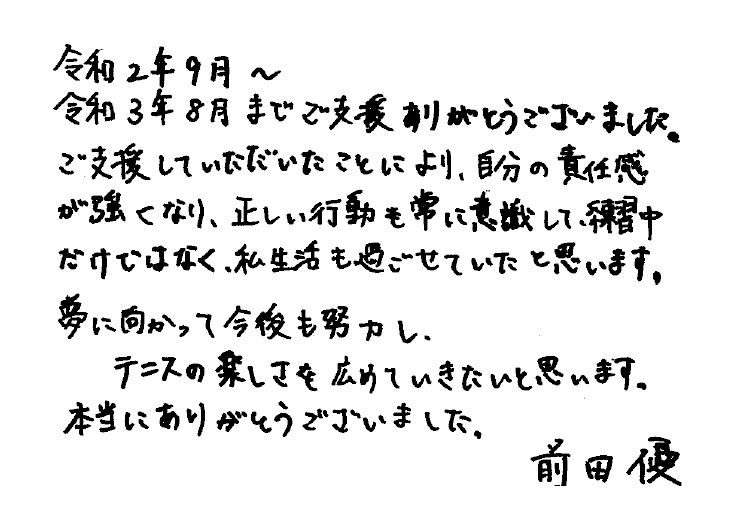 令和2年9月～
令和3年8月までご支援ありがとうございました。
ご支援していただいたことにより、自分の責任感
が強くなり、正しい行動も常に意識して、練習中
だけではなく、私生活も過ごせていたと思います。
夢に向かって今後も努力し、
テニスの楽しさを広めていきたいと思います。
本当にありがとうございました。
前田優